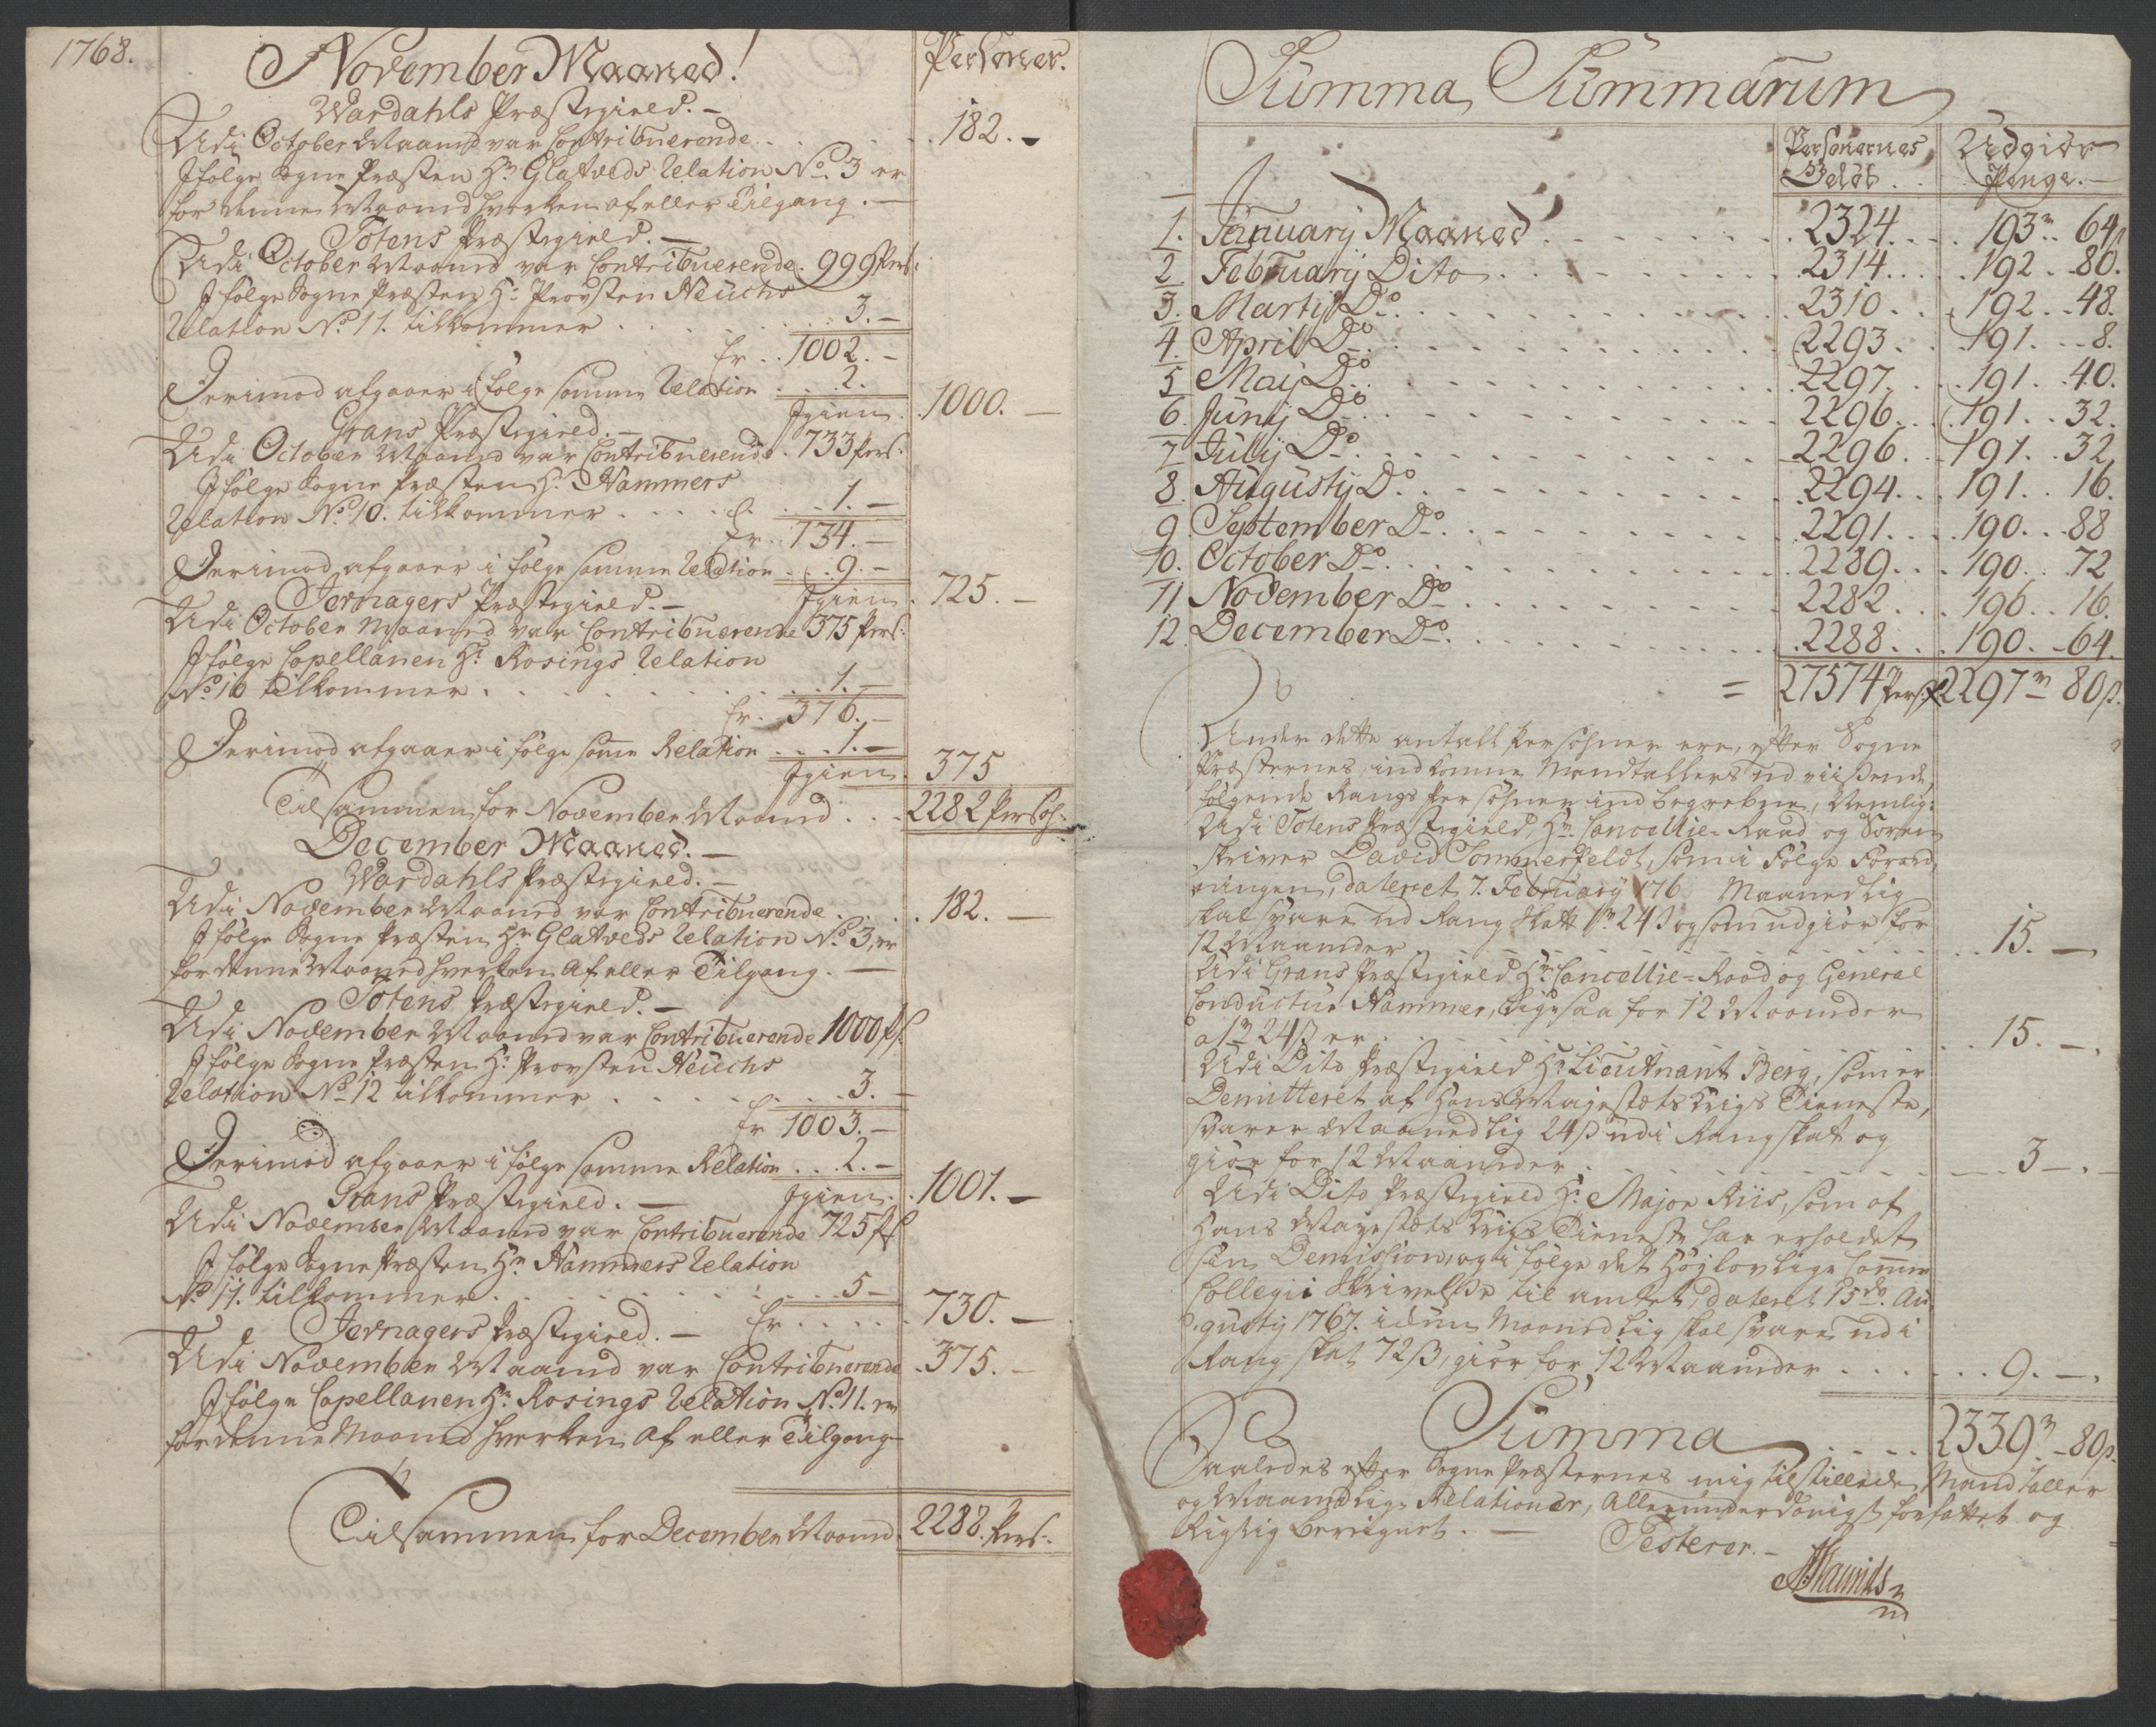 1768.
November Maaned!
Personer.
Wardahls Præstegield. -
Udi October Maaned var Contribuerende . . . 182. -
Ifølge Sogne Præsten Hr Glatveds Relation No 3 er
for denne Maaned hverken af eller Tilgang. -
Totens Præstegield. -
Udi October Maaned var Contribuerende. 999 Pers:
I følge Sogne Præsten Hr Provsten Neuchs
Relation No 11. tilkommer . . . 3. -
Er . . 1002. -
Derimod afgaaer i følge samme Relation . . . 2.
Igien . 1000. -
Grans Præstegield. -
Udi October Maaned var Contribuerende . 733 Pers:
Ifølge Sogne Præsten Hr. Hammers
Relation No 10. tilkommer . . . 1. -
Er . . 734. -
Derimod afgaaer i følge samme Relation . . 9. -
Igien . 725. -
Jevnagers Præstegield. -
Udi October Maaned var Contribuerende 375 Pers:
Ifølge Capellanen Hr: Rosings Relation
No 10 tilkommer . . . 1. -
Er . 376. -
Derimod afgaaer i følge samme Relation . . . 1. -
Igien . 375
Tilsammen for November Maaned . . . 2282 Persoh:
December Maaned. -
Wardahls Præstegield. -
Udi November Maaned var Contribuerende . . . 182. -
I følge Sogne Præsten Hr Glatveds Relation No 3, er
for denne Maaned hverken Af eller Tilgang. -
Totens Præstegield. -
Udi November Maaned var Contribuerende 1000 Ps:
I følge Sogne Præsten Hr: Provsten Neuchs
Relation No 12 tilkommer . . . 3. -
Er 1003. -
Derimod afgaaer i følge samme Relation . . . 2. -
Igien . . 1001. -
Grans Præstegield. -
Udi November Maaned var Contribuerende 725 Ps
I følge Sogne Præsten Hr Hammers Relation
No 11. tilkommer . . . 5 -
Er . . . . . 730. -
Jevnagers Præstegield. -
Udi November Maaned var Contribuerende . 375. -
I følge Capellanen Hr Rosings Relation No 11. er
for denne Maaned hverken Af eller Tilgang
Tilsammen for December Maaned . 2288. Pers:
Summa Summarum
Personernes Udgiør
Beløb . . Penge. -
1. January Maaned . . . 2324. . . 193m . 64ß
2 February Dito . . . 2314. . . 192 . . 80.
3. Marty Do . . . 2310 . . 192 . . 48.
4. April Do . . . 2293 . . 191. . . 8.
5 May Do . . . 2297 . . 191. . 40.
6. Juny Do . . . 2296. . . 191. . 32.
7 July Do . . . 2296. . . 191. . 32
8. Augusty Do . . . 2294. . . 191. . 16.
9 September Do . . . 2291. . . 190. . 88
10. October Do . . . 2289. . . 190. . 72
11 November Do . . . 2282. . . 190. . 16.
12. December Do . . . 2288. . . 190. . 64.
= 27574 Pers: 2297m 80ß.
Under dette antall Persohner ere, efter Sogne
Præsternes, indkomne Mandtallers udviisende,
følgende Rangs Persohner indbegrebne, Nemlig:
Udi Totens Præstegield, Hr. Cancellie-Raad og Soren
skriver David Sommerfeldt, som i Følge Forord,
ningen, dateret 7. February 176 Maanedlig
skal svare ud Rang Skatt 1m 24ß og som udgiør for
12 Maaneder . . . 15. -
Udi Grans Præstegield Hr. Cancellie-Raad og General
Conducteur Hammer, ligesaa for 12 Maaneder
a 1m 24ß er . . . 15. -
Udi Dito Præstegield Hr: Lieutnant Berg, som er
Demitteret af Hans Mayestæts Krigs Tieneste,
svarer Maanedlig 24ß udi Rangskat og
giør for 12 Maaneder . . . 3 -
Udi Dito Præstegield Hr: Major Riis, som af
Hans Mayestæts Krigs Tieneste har erholdet
sin Demission, og i følge det Høylovlige Camer
Collegii Skrivelse til amtet, dateret 15de Au
gusty 1767. idun Maanedlig skal svare udi
Rang skat 72ß, giør for 12 Maaneder . . . 9. -
Summa . . . 2339m - 80ß.
Saaledes efter Sogne Præsternes mig tilstillede Mandtaller
og Maanedlige Relationer, Allerunderdanigst forfattet og
Rigtig beregnet. -
Testerer. -